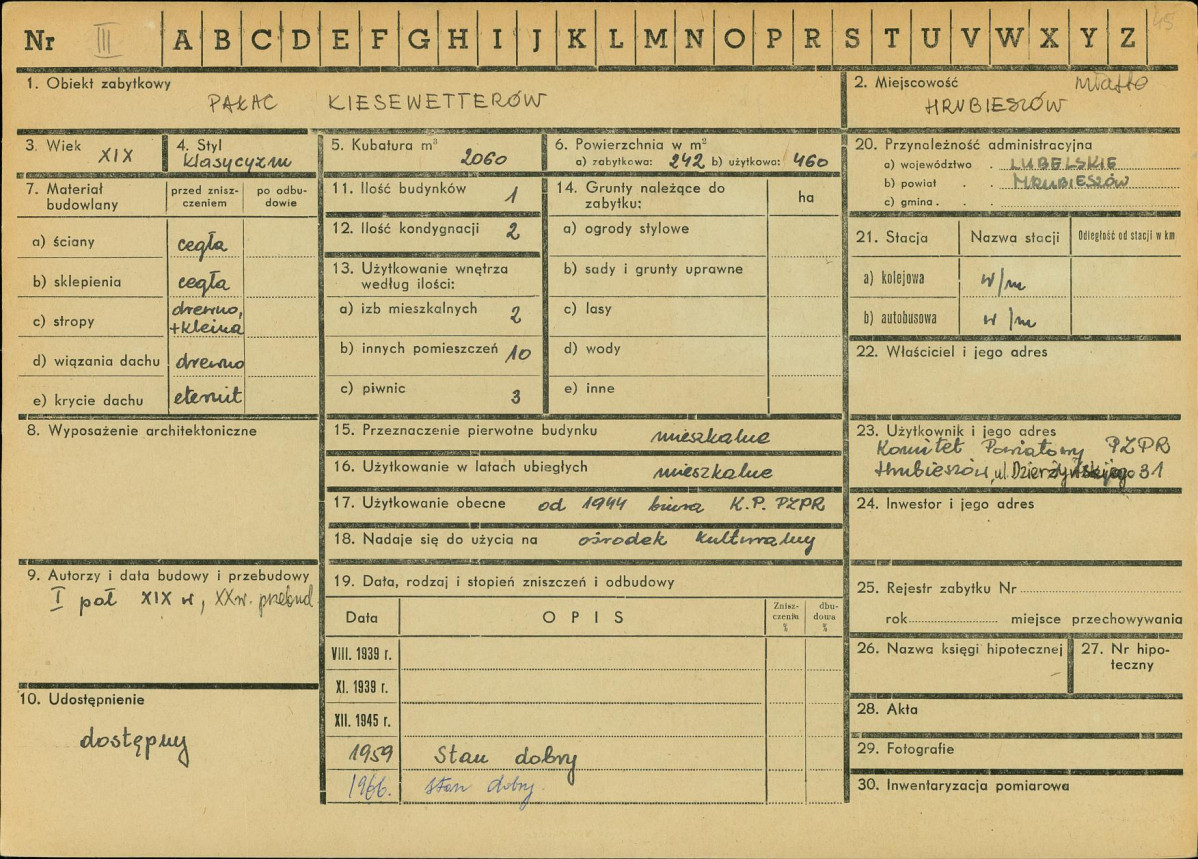 Nr III A B C D E F G H I J K L M N O P R S T U V W X Y Z 45
1. Obiekt zabytkowy
PAŁAC KIESEWETTERÓW
2. Miejscowość miasto
HRUBIESZÓW
3. Wiek XIX
4. Styl
klasycyzm
5. Kubatura m³ 2060
6. Powierzchnia w m²
a) zabytkowa: 242 b) użytkowa: 460
7. Materiał budowlany
przed zniszczeniem
po odbudowie
a) ściany cegła
b) sklepienia cegła
c) stropy drewno,
+kleina
d) wiązania dachu drewno
e) krycie dachu eternit
8. Wyposażenie architektoniczne
9. Autorzy i data budowy i przebudowy
I poł XIX w, XXw. przebud
10. Udostępnienie
dostępny
11. Ilość budynków 1
12. Ilość kondygnacji 2
13. Użytkowanie wnętrza
według ilości:
a) izb mieszkalnych 2
b) innych pomieszczeń 10
c) piwnic 3
14. Grunty należące do
zabytku:
ha
a) ogrody stylowe
b) sady i grunty uprawne
c) lasy
d) wody
e) inne
15. Przeznaczenie pierwotne budynku mieszkalne
16. Użytkowanie w latach ubiegłych mieszkalne
17. Użytkowanie obecne od 1944 biura K.P. PZPR
18. Nadaje się do użycia na ośrodek kulturalny
19. Data, rodzaj i stopień zniszczeń i odbudowy
Data
OPIS
Znisz-
czenia
%
dbu-
dowa
%
VIII. 1939 r.
XI. 1939 r.
XII. 1945 r.
1959 Stan dobry
1966. stan dobry.
20. Przynależność administracyjna
a) województwo . LUBELSKIE
b) powiat . . HRUBIESZÓW
c) gmina . . .
21. Stacja
Nazwa stacji
Odległość od stacji w km
a) kolejowa w/m
b) autobusowa w/m
22. Właściciel i jego adres
23. Użytkownik i jego adres
Komitet Powiatowy PZPR
Hrubieszów, ul. Dzierżyńskiego 31
24. Inwestor i jego adres
25. Rejestr zabytku Nr
rok miejsce przechowywania
26. Nazwa księgi hipotecznej
27. Nr hipo-
teczny
28. Akta
29. Fotografie
30. Inwentaryzacja pomiarowa